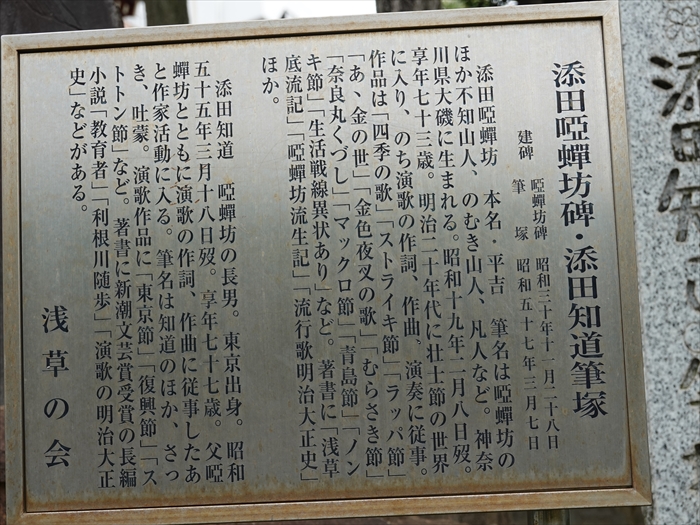 添田啞蟬坊碑・添田知道筆塚
建碑 啞蟬坊碑 昭和三十年十一月二十八日
筆塚 昭和五十七年三月七日
添田啞蟬坊 本名・平吉 筆名は啞蟬坊の
ほか不知山人、のむき山人、凡人など。神奈
川県大磯に生まれる。昭和十九年二月八日歿。
享年七十三歳。明治二十年代に壮士節の世界
に入り、のち演歌の作詞、作曲、演奏に従事。
作品は「四季の歌」「ストライキ節」「ラッパ節」
「あゝ金の世」「金色夜叉の歌」「むらさき節」
「奈良丸くづし」「マックロ節」「青島節」「ノン
キ節」「生活戦線異状あり」など。著書に「浅草
底流記」「啞蟬坊流生記」「流行歌明治大正史」
ほか。
添田知道 啞蟬坊の長男。東京出身。昭和
五十五年三月十八日歿。享年七十七歳。父啞
蟬坊とともに演歌の作詞、作曲に従事したあ
と作家活動に入る。筆名は知道のほか、さつ
き、吐蒙。演歌作品に「東京節」「復興節」「ス
トトン節」など。著書に新潮文芸賞受賞の長編
小説「教育者」「利根川随歩」「演歌の明治大正
史」などがある。
浅草の会